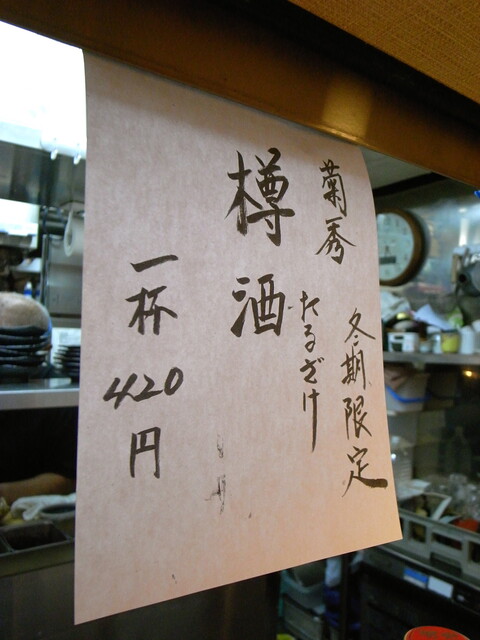 菊秀 冬期限定
樽酒
たるざけ
一杯420円